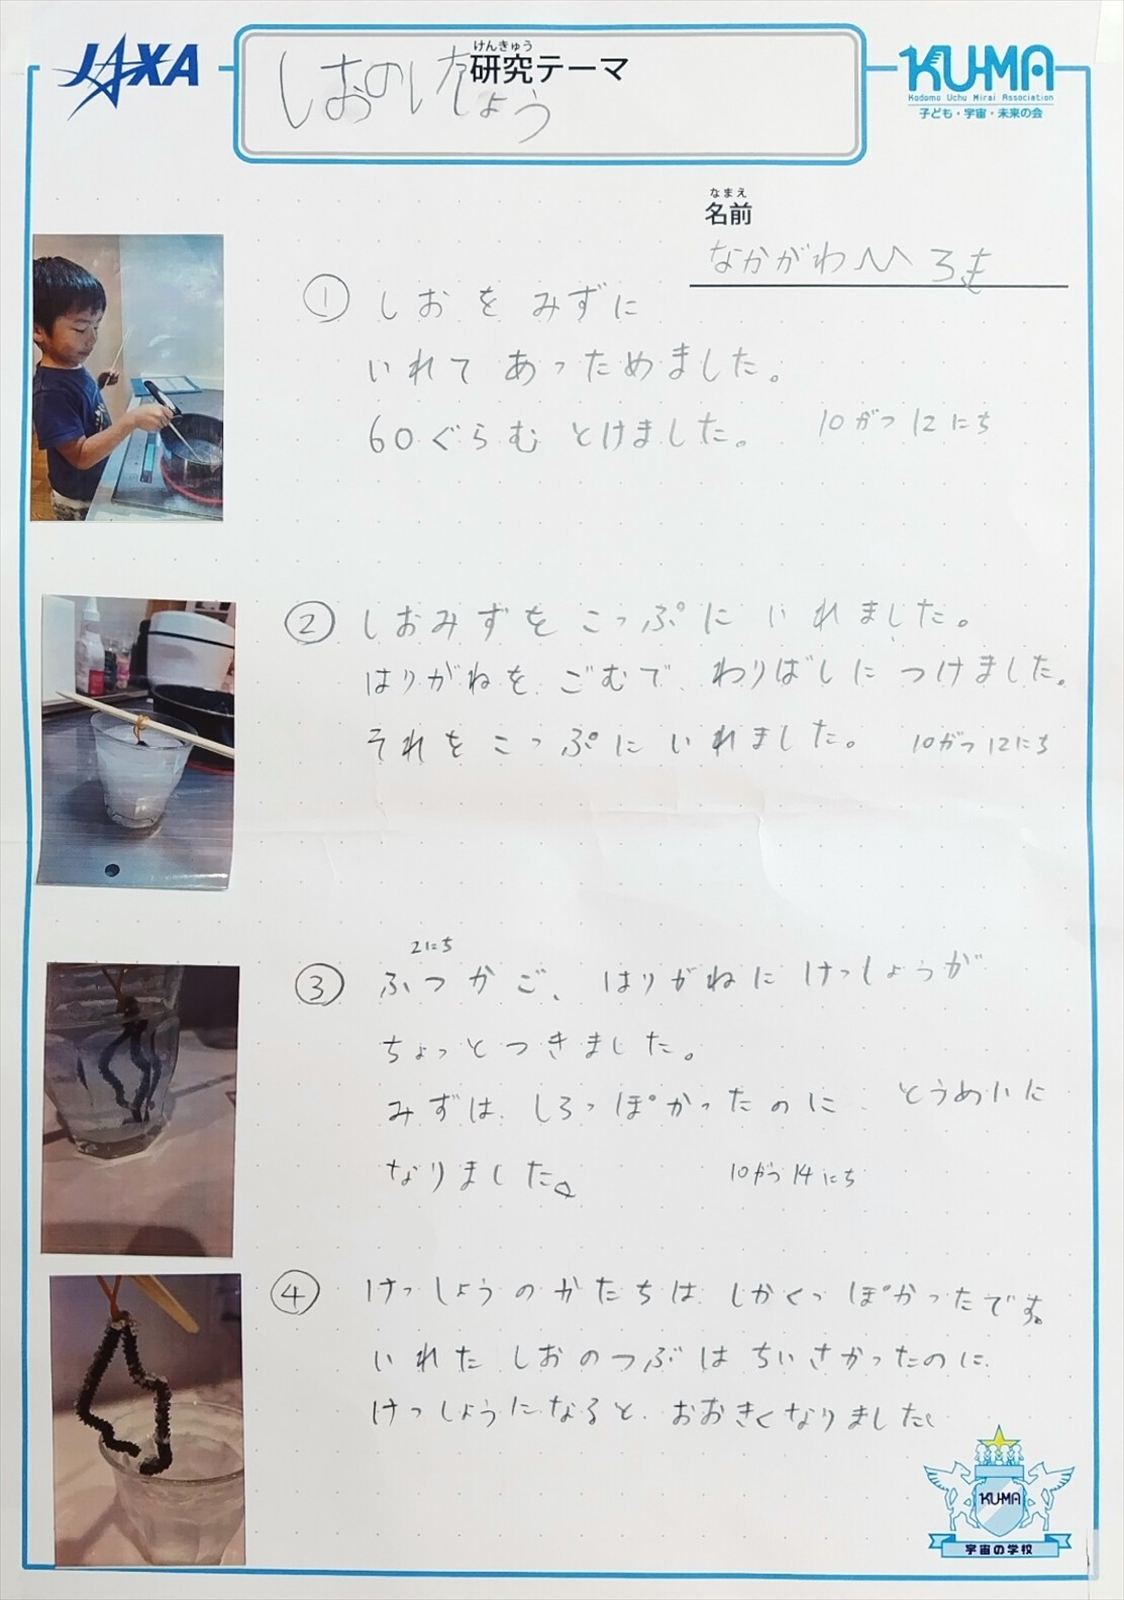 JAXA
けんきゅう
研究テーマ
しおのけっしょう
KU-MA
Kodomo Uchu Mirai Association
子ども・宇宙・未来の会
なまえ
名前
なかがわ
① しおを みずに
いれて あっためました。
60ぐらむ とけました。 10がつ12にち
② しおみずを こっぷに いれました。
はりがねを ごむで、わりばしに つけました。
それを こっぷに いれました。 10がつ12にち
2にち
③ ふつかご、はりがねに けっしょうが
ちょっと つきました。
みずは、しろっぽかったのに、とうめいに
なりました。 10がつ14にち
④ けっしょうのかたちは、しかくっぽかったです。
いれた しおのつぶは ちいさかったのに、
けっしょうになると、おおきくなりました。
KU-MA
宇宙の学校